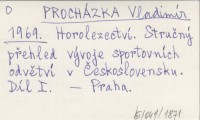 O PROCHÁZKA Vladimír
1969. Horolezectví. Stručný
přehled vývoje sportovních
odvětví v Československu.
Díl I. – Praha.